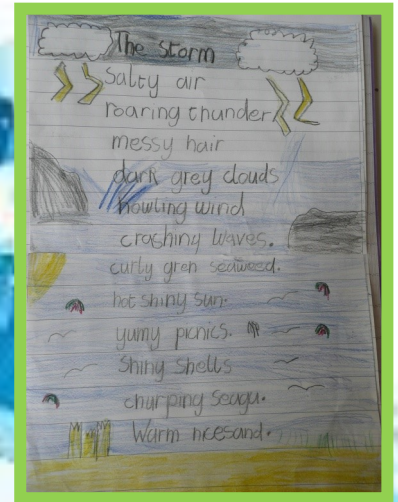 The Storm
Salty air
roaring thunder
messy hair
dark grey clouds
howling wind
crashing waves.
curly gren seaweed.
hot shiny sun.
yumy picnics.
Shiny Shells
churping Seagu.
Warm nicesand.